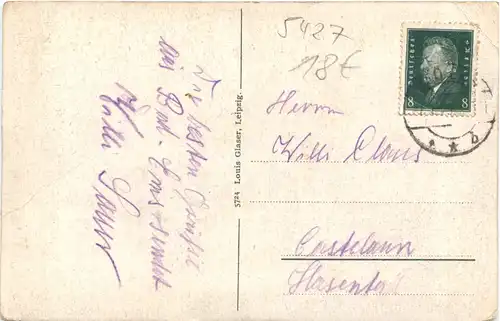 Die besten Grüße
aus Bad-Ems sendet
Willi
5724 Louis Glaser, Leipzig.
5427
18€
Deutsches Reich
8 8
Herrn
Willi Claus
Castelaun
* * b